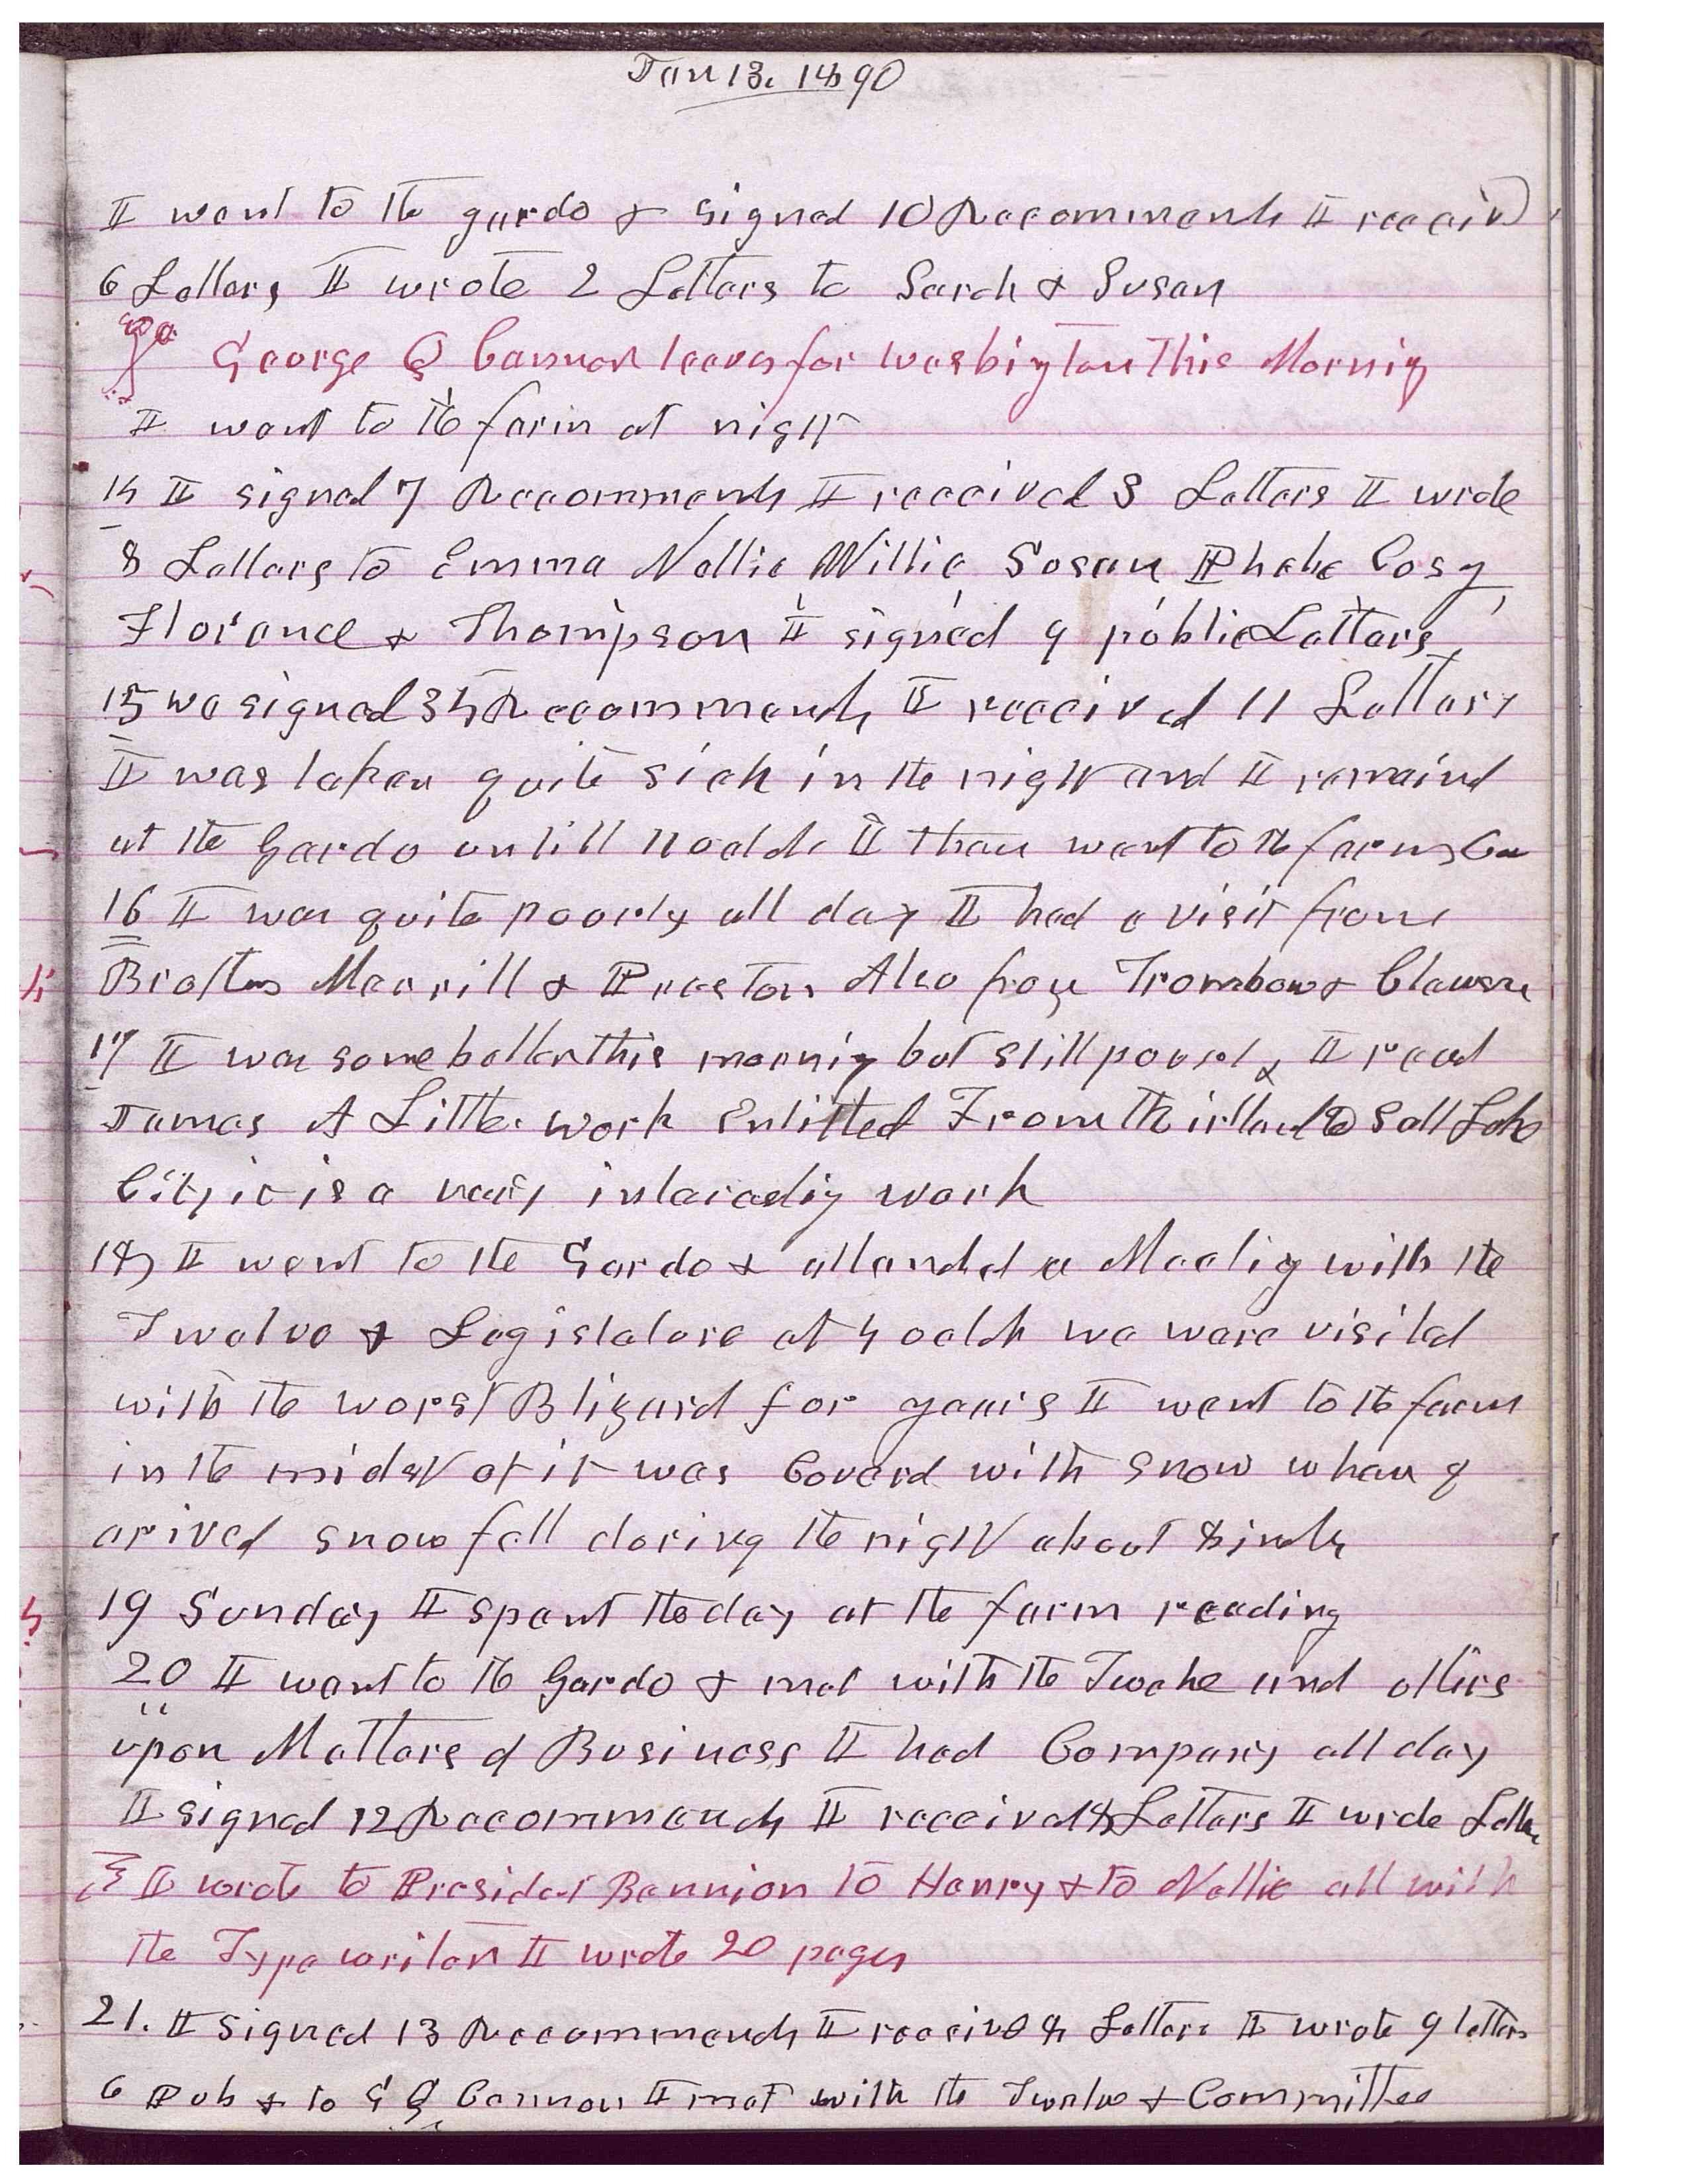 Jan 13. 1890
I went to the gardo & signed 10 Recommends I receivd
6 Letters I wrote 2 Letters to Sarah & Susan
George Q Cannon leaves for Washington This Morning
I went to the farm at night
14 I signed 7 Recommends I received 3 Letters I wrote
8 Letters to Emma Nellie Willie Susan Phebe Cosy
Florance & Thompson I signed 9 public Letters
15 we signed 34 Recommends I received 11 Letters
I was taken quite sick in the night and I remaind
at the Gardo untill oclok I then went to the farm
16 I was quite poorly all day I had a visit from
Brothers Merrill & Preston Also from & Clawson
17 I was some better this morning but still poorly I read
James A Little work Entitled From Kirtland to Salt Lake
City it is a very interesting work
18 I went to the Gardo & attended a Meeting with the
Twelve & Legislature at 4 oclok we were visited
with the worst Blizard for years I went to the farm
in the midst of it was Coverd with snow when I
arived snow fell during the night about 8 inch
19 Sunday I spent the day at the farm reading
20 I went to the Gardo & met with the Twelve and others
upon Matters of Business I had Company all day
I signed 12 Recommends I received 8 Letters I wrote Letters
I wrote to President Bennion to Henry & to Nellie all with
the Type writer I wrote 20 pages
21. I signed 13 Recommends I receivd 4 Letters I wrote 9 letters
6 Pub & to G Q Cannon I met with the Twelve & Committee